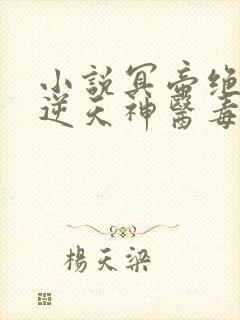 小說冥帝絕
逆天神醫毒
楊天梁